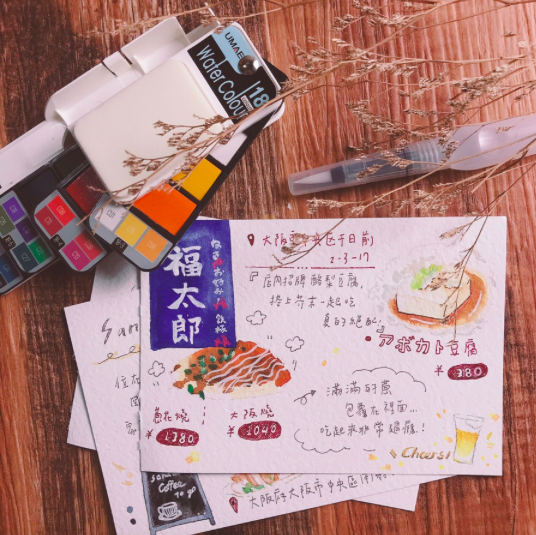 UMAE
Water Colour
18
福太郎
ねぎ お好み 鉄板
大阪市中央区千日前
2-3-17
『店內招牌 酪梨豆腐,
搭上芥末一起吃
真的絕配!
・アボカド豆腐
¥380
蔥花燒
¥1380
大阪燒
¥1040
滿滿的蔥
包覆在裡面...
吃起來非常過癮!
Cheers!
Coffee
to go
大阪府大阪市中央區